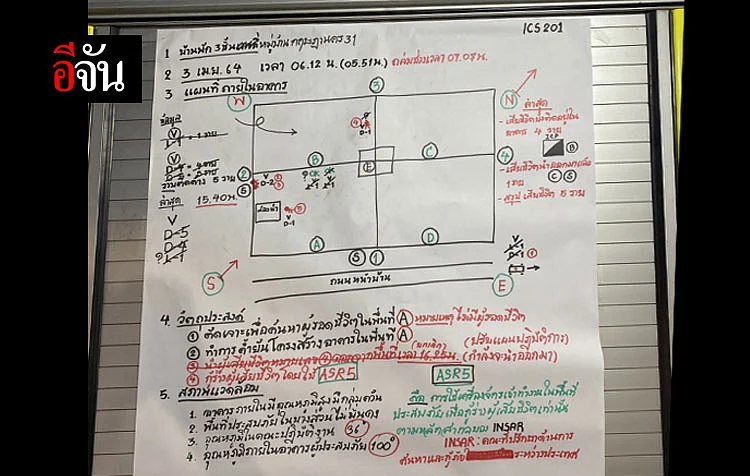 อีจัน
ICS 201
1 บ้านพัก 3 ชั้น หมู่บ้าน กฤษดานคร 31
2 3 เม.ย. 64 เวลา 06.12 น. (05.51น.) ถล่มช่วงเวลา 07.07น.
3 แผนที่ ภายในอาคาร
W
3
N
ข้อมูล
V
ล่าสุด
- เสียชีวิตยังติดอยู่ใน
อาคาร 4 ราย
ICP
B
4
D-1
B
C
E
2
S
V
D-2
? OK
รวมติดค้าง 5 ราย
ล่าสุด 15.40น.
ห้องน้ำ
5
V
D-1
1 ราย
C S
- สรุป เสียชีวิต 5 ราย
V
D-5
D-4
A
D
S
1
S
ถนนหน้าบ้าน
E
4. วัตถุประสงค์
① ตัดเจาะเพื่อค้นหาผู้รอดชีวิตในพื้นที่ A หมายเหตุ ไม่มีผู้รอดชีวิต
② ทำการ ค้ำยันโครงสร้าง อาคารในพื้นที่ A (ปรับแผนปฏิบัติการ)
③ นำผู้เสียชีวิตหมายเลข เวลา 16.25น. (กำลังจะนำออกมา)
④ กู้ร่างผู้เสียชีวิตโดยใช้ ASR5 ASR5
5. สภาพแวดล้อม
คือ การใช้เครื่องจักรเข้าทำงานในพื้นที่
1. อาคารภายในมีอุณหภูมิสูงมีกลุ่มควัน
ประสบภัย เพื่อกู้ร่างผู้เสียชีวิตเท่านั้น
2. พื้นที่ประสบภัยในบางส่วนไม่มั่นคง
ตามหลักสากลของ INSAR
3. อุณหภูมิในขณะปฏิบัติงาน 36°
INSARAG: คณะที่ปรึกษาด้านการ
4. อุณหภูมิภายในอาคารผู้ประสบภัย 100°
ค้นหาและกู้ภัย ระหว่างประเทศ